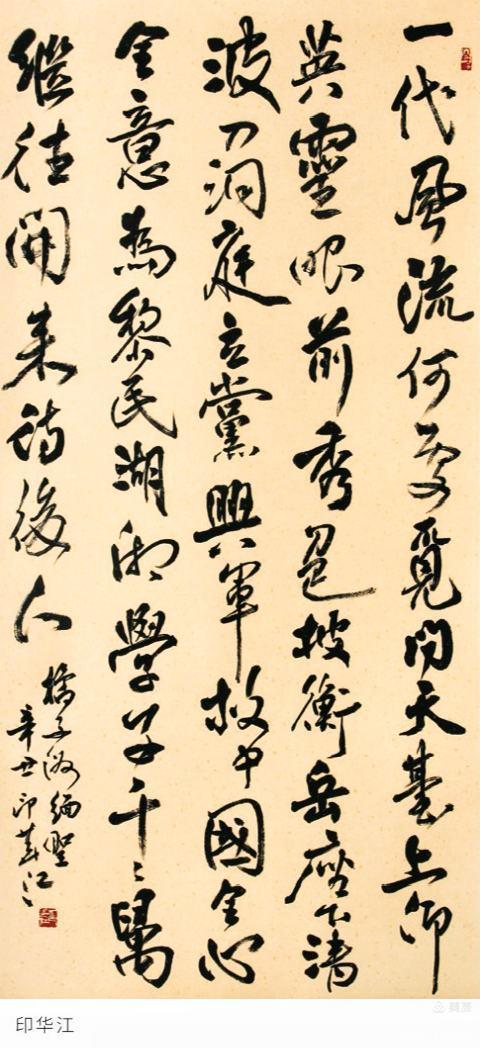 一代風流何處覓問天臺上仰
英靈眼前秀色披衡岳座下清
波洞庭立黨興軍救中國全心
全意為黎民湖湘學子千々萬
繼往開來待後人
橘子洲緬聖
辛丑印華江
印华江
美篇